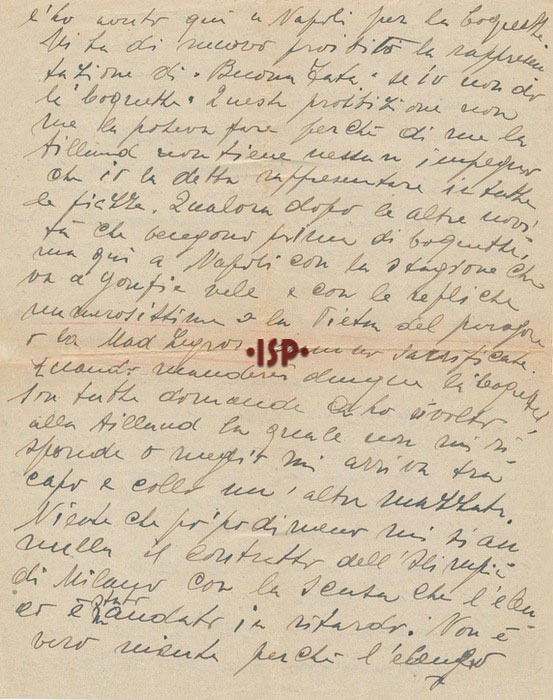 l'ho avuto qui a Napoli per la coquette
Mi ha di nuovo proibito la rappresen
tazione di "Buona Fata" se io non do
la "coquette". Questa proibizione non
me la poteva fare perchè di me la
Lilland non tiene nessun impegno
che io la detta rappresentare in tutte
le piazze. Qualora dopo le altre novi
tà che vengono prima di coquette,
ma qui a Napoli con la stagione che
va a gonfie vele e con le repliche
numerosissime e la Pietra del paragone
o la Mad sacrificate.
quando manderei dunque la coquette?
Son tutte domande che ho rivolto
alla Lilland la quale non mi ri
sponde o meglio mi arriva tra
capo e collo un'altra mazzata.
Niente che po' po' di meno mi si an
nulla il contratto dell'Olimpia
di Milano con la scusa che l'elen
co è stato mandato in ritardo. Non è
vero niente perchè l'elenco
·ISP·